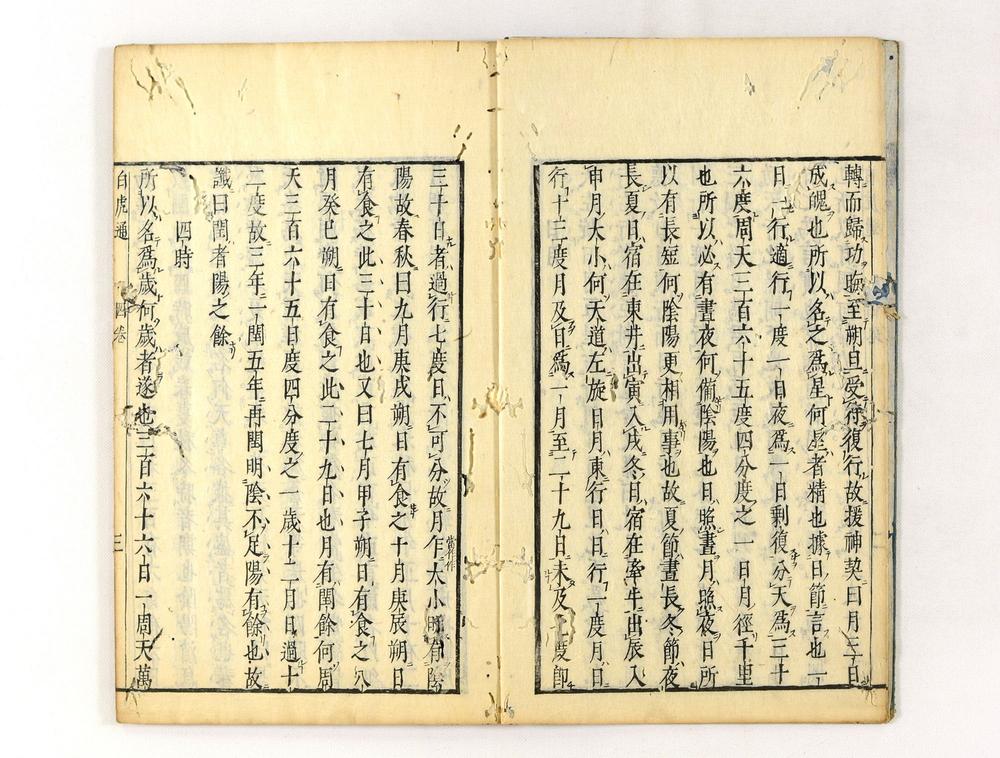 轉而歸功晦至朔旦受符復行故援神契曰月三日
成魄也所以名之爲星何星者精也據日節言也一
日一行適行一度一日夜爲一日剩復分天爲三十
六度周天三百六十五度四分度之一日月徑千里
也所以必有晝夜何備陰陽也日照晝月照夜日所
以有長短何陰陽更相用事也故夏節晝長冬節夜
長夏日宿在東井出寅入戌冬日宿在牽牛出辰入
申月大小何天道左旋日月東行日日行一度月日
行十三度月及日爲一月至二十九日未及七度卽
三十日者過行七度日不可分故月乍大小明有陰
當作
陽故春秋曰九月庚戌朔日有食之十月庚辰朔日
有食之此三十日也又曰七月甲子朔日有食之八
月癸巳朔日有食之此二十九日也月有閏餘何周
天三百六十五日度四分度之一歲十二月日過十
二度故三年一閏五年再閏明陰不足陽有餘也故
讖曰閏者陽之餘
四時
所以名爲歲何歲者遂也三百六十六日一周天萬
白虎通 四卷 三